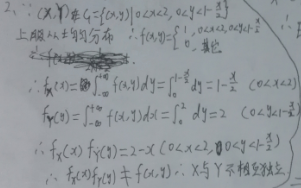 2. ∵ (X,Y) 在 G={(x,y)|0<x<2, 0<y<1-x/2}
上服从均匀分布 ∴ f(x,y)={1, 0<x<2, 0<y<1-x/2 0, 其它
∴ fX(x)=∫_{-∞}^{+∞} f(x,y)dy=∫_0^{1-x/2} dy=1-x/2 (0<x<2)
fY(y)=∫_{-∞}^{+∞} f(x,y)dx=∫_0^2 dy=2 (0<y<1-x/2)
∴ fX(x) fY(y)=2-x (0<x<2, 0<y<1-x/2)
∴ fX(x) fY(y) ≠ f(x,y) ∴ X与Y不相互独立